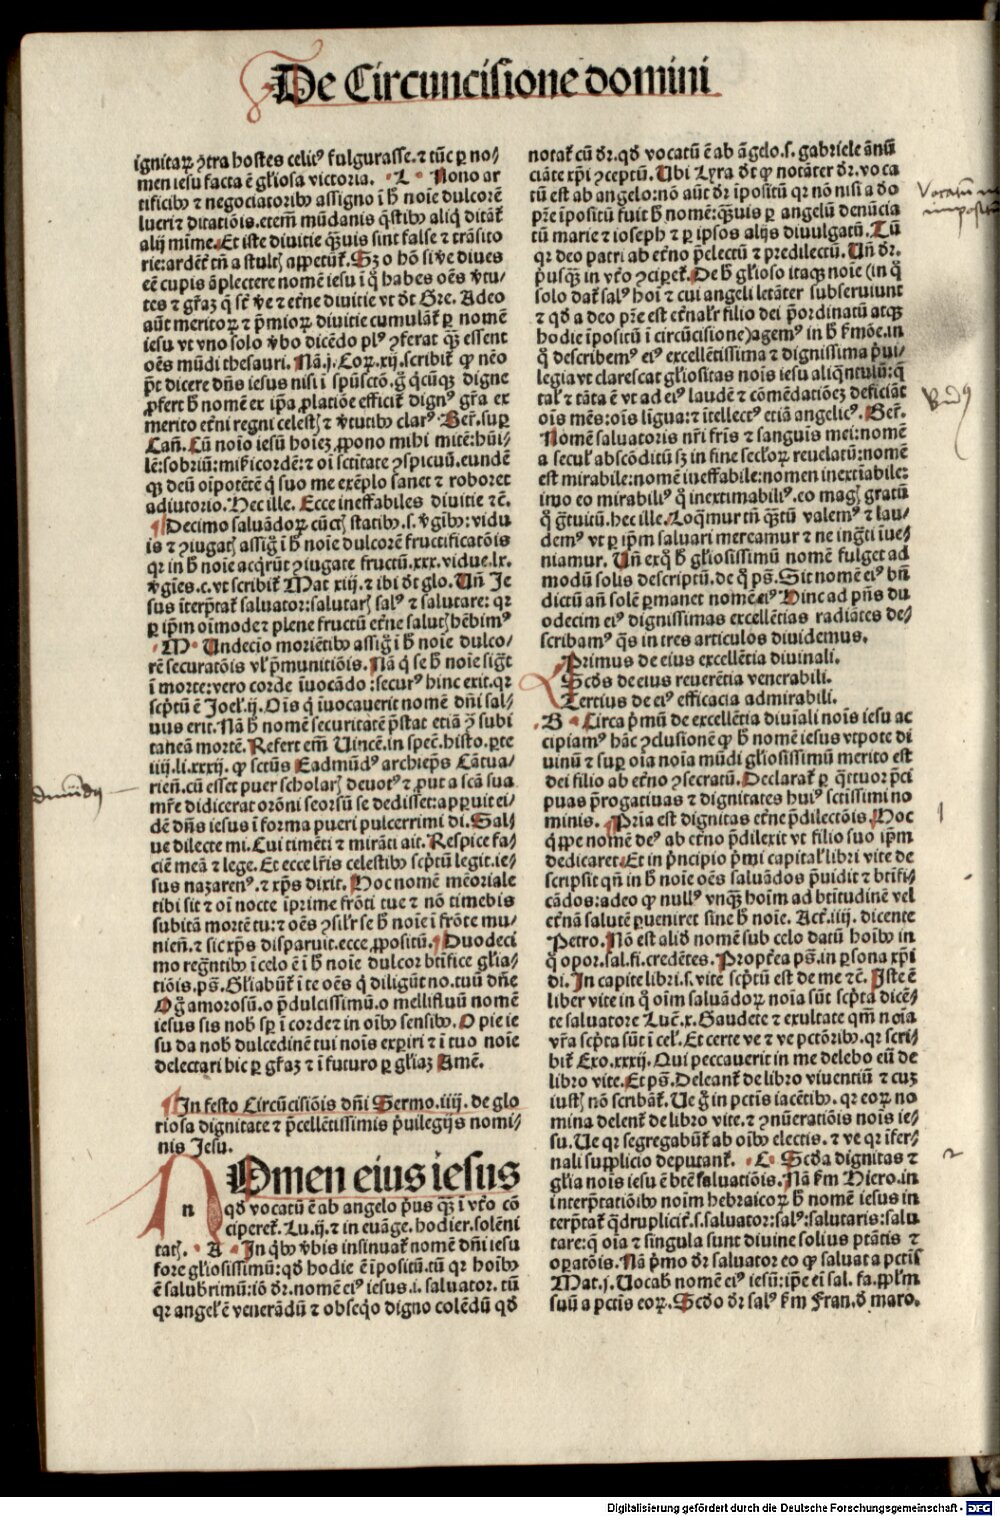 De Circuncisione domini
ignitaꝝ ꝯtra hostes celitꝰ fulgurasse. ⁊ tūc ꝑ no⸗
men iesu facta ē gl'iosa victoria. L Nono ar
tificibꝰ ⁊ negociatoribꝰ assigno ī h̄ noīe dulcorē
lucri ⁊ ditatiōis. etem̄ mūdanis q̄stibꝰ aliq̄ ditāt̄
alij mīme. Et iste diuitie q̄ꝫuis sint false ⁊ trāsito
rie: ardēt̄ tn̄ a stultꝭ appetūt̄. Sꝫ o hō si v̄e diues
eē cupis āplectere nomē iesu ī q̄ habes oēs v̄tu⸗
tes ⁊ gr̄az q̄ st̄ v̄e ⁊ et̄ne diuitie vt d̄t Gre. Adeo
aūt meritoꝝ ⁊ p̄mioꝝ diuitie cumulāt̄ ꝑ nomē
iesu vt vno solo v̄bo dicēdo plꝰ ꝯferat q̄ꝫ essent
oēs mūdi thesauri. Nā .j. Coꝝ. xij. scribit̄ ꝙ nēo
p̄t dicere dn̄s iesus nisi ī spūsctō. g̊ q̄cūqꝫ digne
ꝓfert h̄ nomē ex ip̄a ꝓlatiōe efficit̄ dignꝰ gr̄a ex
merito et̄ni regni celestꝭ ⁊ v̄tutibꝰ clarꝰ. Ber̄. suꝑ
Can̄. Cū noīo iesū hoīeꝫ ꝓpono mihi mitē: hūi⸗
lē: sobriū: mīs̄icordē: ⁊ oī sctītate ꝯspicuū. eundē
qꝫ deū oīpotētē q̄ suo me exēplo sanet ⁊ roboret
adiutorio. Hec ille. Ecce ineffabiles diuitie ⁊c̄.
Decimo saluādoꝝ cūctꝭ statibꝰ .s. v̄gībꝰ: vidu
is ⁊ ꝯiugatꝭ assig̊ ī h̄ noīe dulcorē fructificatōis
qꝛ in h̄ noīe acq̄rūt ꝯiugate fructū .xxx. vidue .lx.
v̄gīes .c. vt scribit̄ Mat xiij. ⁊ ibi d̄t glo. Un̄ Je
sus īterp̄tat̄ saluator: salutarꝭ salꝰ ⁊ salutare: qꝛ
ꝑ ip̄m oīmode ⁊ plene fructū et̄ne salutꝭ hēbimꝰ
M Undecīo moriētibꝰ assig̊ ī h̄ noīe dulco⸗
rē securatōis vl' p̄munitiōis. Nā q̄ se h̄ noīe sig̊t
ī morte: vero corde īuocādo: securꝰ hinc exit. qꝛ
scp̄tū ē Joel'. ij. Oīs q̄ īuocauerit nomē dn̄i sal⸗
uus erit. Nā h̄ nomē securitatē p̄stat etiā ꝯ subi
taneā mortē. Refert em̄ Uincē. in speē. histo. ꝑte
iiij. li. xxxij. ꝙ sctūs Eadmūdꝰ archiep̄s Cātua⸗
rien̄. cū esset puer scholarꝭ deuotꝰ ⁊ ꝓut a scā sua
mr̄e didicerat orōni seorsū se dedisset: apꝑuit ei⸗
dē dn̄s iesus ī forma pueri pulcerrimi dī. Sal⸗
ue dilecte mi. Cui timēti ⁊ mirāti ait. Respice fa⸗
ciē meā ⁊ lege. Et ecce lr̄is celestibꝰ scp̄tū legit. ie⸗
sus nazarenꝰ. ⁊ xp̄s dixit. Hoc nomē mēoriale
tibi sit ⁊ oī nocte īprime frōti tue ⁊ nō timebis
subitā mortē tu: ⁊ oēs ꝯsil'r se h̄ noīe ī frōte mu⸗
nien̄. ⁊ sic xp̄s disparuit. ecce ꝓpositū. Duodeci
mo regn̄tibꝰ ī celo ē ī h̄ noīe dulcor btīfice gl'ia⸗
tiōis. ps̄. Gl'iabūt̄ ī te oēs q̄ diligūt no. tuū dn̄e
O g̊ amorosū. o p̄dulcissimū. o mellifluū nomē
iesus sis nob̄ sꝑ ī corde ⁊ in oībꝰ sensibꝰ. O pie ie
su da nob̄ dulcedinē tui noīs exꝑiri ⁊ ī tuo noīe
delectari hic ꝑ gr̄aꝫ ⁊ ī futuro ꝑ gl'iaꝫ Amē.
In festo Circūcisiōis dn̄i Sermo .iiij. de glo
riosa dignitate ⁊ p̄cellētissimis p̄uilegijs nomi⸗
nis Jesu.
n
Omen eius iesus
qd̄ vocatū ē ab angelo p̄us q̄ꝫ ī vt̄o cō
ciperet̄. Lu. ij. ⁊ in euāge. hodier. solēni
tatꝭ. A In q̄bꝰ v̄bis insinuat̄ nomē dn̄i iesu
fore gl'iosissimū: qd̄ hodie ē īpositū: tū qꝛ hoībꝰ
ē salubrimū: iō dr̄. nomē eiꝰ iesus .i. saluator. tū
qꝛ angel' ē venerādū ⁊ obseq̄o digno colēdū qd̄
notat̄ cū dr̄. qd̄ vocatū ē ab āgelo .s. gabriele ānū
ciāte xp̄i ꝯceptū. Ubi Lyra dt̄ ꝙ notāter dr̄. voca
tū est ab angelo: nō aūt dr̄ īpositū qꝛ nō nisi a do
pr̄e īpositū fuit h̄ nomē: q̄ꝫuis ꝑ angelū denūcia
tū marie ⁊ ioseph ⁊ ꝑ ip̄sos alijs diuulgatū. Tū
qꝛ deo patri ab et̄no p̄electū ⁊ predilectū. Un̄ dr̄.
p̄usq̄ꝫ in vt̄o ꝯciꝑet̄. De h̄ gl'ioso itaqꝫ noīe (in q̄
solo dat̄ salꝰ hoī ⁊ cui angeli letāter subseruiunt
⁊ qd̄ a deo pr̄e est et̄nal'r filio dei p̄ordinatū atqꝫ
hodie īpositū ī circūcisione) agemꝰ in h̄ s̄mōe. in
q̄ describemꝰ eiꝰ excellētissima ⁊ dignissima p̄ui⸗
legia vt clarescat gl'iositas noīs iesu aliq̄ntulū: q̄
tal' ⁊ tāta ē vt ad eiꝰ laudē ⁊ cōmēdatiōeꝫ deficiāt
oīs mēs: oīs līgua: ⁊ ītellectꝰ etiā angelicꝰ. Ber̄.
Nomē saluatoris nr̄i fr̄is ⁊ sanguīs mei: nomē
a secul' abscōditū sꝫ in fine sectoꝝ reuelatū: nomē
est mirabile: nomē ineffabile: nomen inextiabile:
imo eo mirabiliꝰ q̄ inextimabiliꝰ. eo magꝭ gratū
q̄ g̊tuitū. hec ille. Loq̄mur tn̄ q̄ꝫtū valemꝰ ⁊ lau⸗
demꝰ vt ꝑ ip̄m saluari mereamur ⁊ ne ing̊ti īue⸗
niamur. Un̄ exq̄ h̄ gl'iosissimū nomē fulget ad
modū solis descriptū. de q̄ ps̄. Sit nomē eiꝰ bn̄
dictū an̄ solē ꝑmanet nomē eiꝰ Hinc ad pn̄s du
odecim eiꝰ dignissimas excellētias radiātes de⸗
scribamꝰ q̄s in tres articulos diuidemus.
Primus de eius excellētia diuinali.
Scd̄s de eius reuerētia venerabili.
Tertius de eiꝰ efficacia admirabili.
B Circa p̄mū de excellētia diuīali noīs iesu ac
cipiamꝰ hāc ꝯclusionē ꝙ h̄ nomē iesus vtpote di
uinū ⁊ suꝑ oīa noīa mūdi gl'iosissimū merito est
dei filio ab et̄no ꝯsecratū. Declarat̄ ꝑ q̄ttuor p̄ci
puas p̄rogatiuas ⁊ dignitates huiꝰ sctissimi no
minis. Pria est dignitas et̄ne p̄dilectōis. Hoc
q̄ppe nomē deꝰ ab et̄no p̄dilexit vt filio suo ip̄m
dedicaret. Et in p̄ncipio p̄mi capital' libri vite de
scripsit qn̄ in h̄ noīe oēs saluādos p̄uidit ⁊ btīfi⸗
cādos: adeo ꝙ nullꝰ vnq̄ꝫ hoīm ad btītudinē vel
et̄nā salutē ꝑueniret sine h̄ noīe. Act̄. iiij. dicente
Petro. Nō est alid̄ nomē sub celo datū hoībꝰ in
q̄ opor. sal. fi. credētes. Propt̄ea ps̄. in ꝑsona xp̄i
dī. In capite libri .s. vite scp̄tū est de me ⁊c̄. Iste ē
liber vite in q̄ oīm saluādoꝝ noīa sūt scp̄ta dicē⸗
te saluatore Luc̄. x. Gaudete ⁊ exultate qm̄ noīa
vr̄a scp̄ta sūt ī cel'. Et certe ve ⁊ ve pctōribꝰ. qꝛ scri⸗
bit̄ Exo. xxxij. Qui peccauerit in me delebo eū de
libro vite. Et ps̄. Deleant̄ de libro viuentiū ⁊ cuꝫ
iustꝭ nō scribāt̄. Ue g̊ in pctīs iacētibꝰ. qꝛ eoꝝ no
mina delent̄ de libro vite. ⁊ ꝯnūeratiōis noīs ie⸗
su. Ue qꝛ segregabūt̄ ab oībꝰ electis. ⁊ ve qꝛ īfer⸗
nali supplicio deputant̄. C Scd̄a dignitas ⁊
gl'ia noīs iesu ē btē saluatiōis. Nā s̄m Hiero. in
interp̄tatiōibꝰ noīm hebraicoꝝ h̄ nomē iesus in
terp̄tat̄ q̄druplicit̄ .s. saluator: salꝰ: salutaris: salu
tare: q̄ oīa ⁊ singula sunt diuine solius ptātis ⁊
oꝑatōis. Nā p̄mo dr̄ saluator eo ꝙ saluat a pctīs
Mat. j. Uocab̄ nomē eiꝰ iesū: ip̄e eī sal. fa. pp̄l'm
suū a pctīs eoꝝ. Scd̄o dr̄ salꝰ s̄m Fran. d̄ maro.
Digitalisierung gefördert durch die Deutsche Forschungsgemeinschaft - DFG